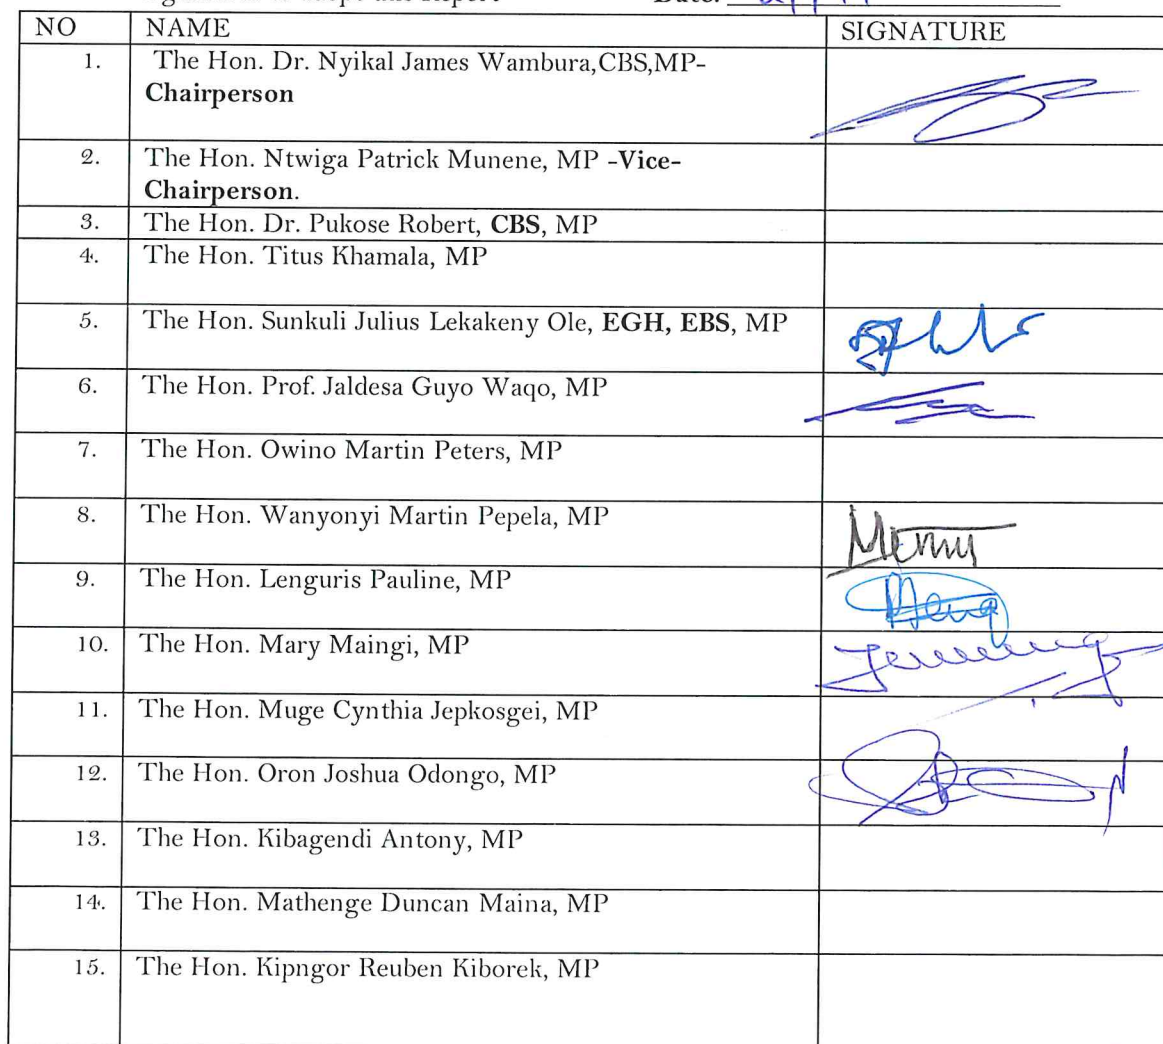 Date:
NO NAME SIGNATURE
1. The Hon. Dr. Nyikal James Wambura,CBS,MP-
Chairperson
2. The Hon. Ntwiga Patrick Munene, MP -Vice-
Chairperson.
3. The Hon. Dr. Pukose Robert, CBS, MP
4. The Hon. Titus Khamala, MP
5. The Hon. Sunkuli Julius Lekakeny Ole, EGH, EBS, MP
6. The Hon. Prof. Jaldesa Guyo Waqo, MP
7. The Hon. Owino Martin Peters, MP
8. The Hon. Wanyonyi Martin Pepela, MP
9. The Hon. Lenguris Pauline, MP
10. The Hon. Mary Maingi, MP
11. The Hon. Muge Cynthia Jepkosgei, MP
12. The Hon. Oron Joshua Odongo, MP
13. The Hon. Kibagendi Antony, MP
14. The Hon. Mathenge Duncan Maina, MP
15. The Hon. Kipngor Reuben Kiborek, MP